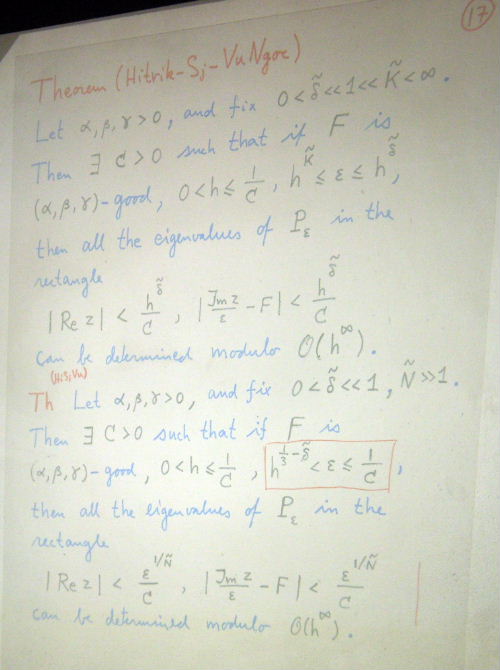 17
Theorem (Hitrik-Sj-VuNgoc)
Let α, β, γ > 0, and fix 0 < δ̃ << 1 << K̃ < ∞.
Then ∃ C > 0 such that if F is
(α, β, γ)-good, 0 < h ≤ 1/C, h^K̃ ≤ ε ≤ h^δ̃,
then all the eigenvalues of P_ε in the
rectangle
|Re z| < h^δ̃/C, |Im z/ε - F| < h^δ̃/C
can be determined modulo O(h^∞).
(HiSjVu)
Th Let α, β, γ > 0, and fix 0 < δ̃ << 1, Ñ >> 1.
Then ∃ C > 0 such that if F is
(α, β, γ)-good, 0 < h ≤ 1/C, h^(1/3 - δ̃) < ε ≤ 1/C,
then all the eigenvalues of P_ε in the
rectangle
|Re z| < ε^(1/Ñ)/C, |Im z/ε - F| < ε^(1/Ñ)/C
can be determined modulo O(h^∞).